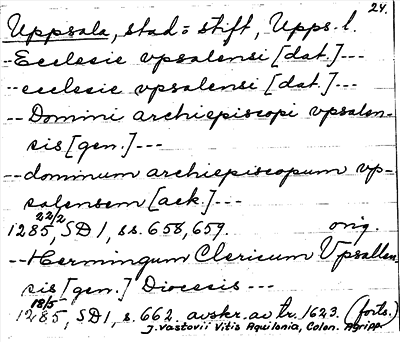 24.
Uppsala, stad o stift, Upps. l.
--Ecclesie vpsalensi [dat.]---
--ecclesie vpsalensi [dat.]---
--Domini archiepiscopi vpsalen-
sis [gen.]---
--dominum archiepiscopum vp-
salensem [ack.]---
22/2
1285, SD 1, ss. 658, 659. orig.
--Hermingum Clericum Vpsallen-
sis [gen.] Diocesis---
18/5
1285, SD 1, s. 662. avskr. av tr. 1623. (forts.)
J. Vastovii Vitis Aquilonia, Colon. Agripp.